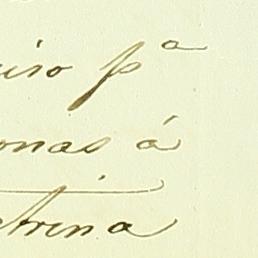 iso pª
onas á
trina